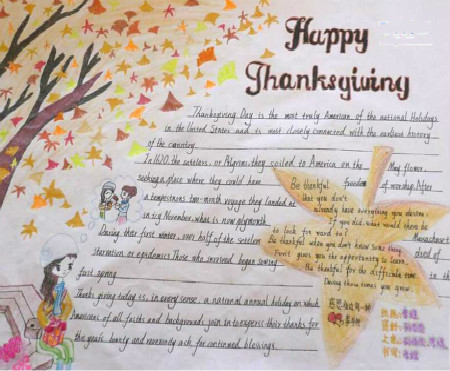 Happy
Thanksgiving
Thanksgiving Day is the most truly American of the national Holidays
in the United States and is most closely connected with the earliest history
of the country.
In 1620, the settlers, or Pilgrims, they sailed to America on the May flower,
seeking a place where they could have freedom of worship. After
a tempestuous two-month voyage they landed at
in icy November, what is now plymouth Massachusetts
During their first winter, over half of the settlers died of
starvation or epidemics. Those who survived began sowing in the
first spring
Thanks giving today is, in every sense, a national annual holiday on which
Americans of all faiths and backgrounds join to express their thanks for
the year's bounty and reverently ask for continued blessings.
Be thankful
that you don't
already have everything you desire.
if you did, what would there be
to look for ward to?
Be thankful when you don't know some thing
gives you the opportunity to learn.
Be thankful for the difficult time.
During those times you grow.